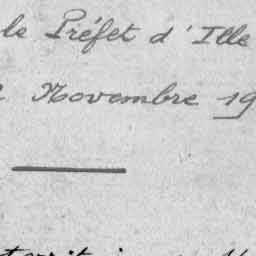 le Préfet d'Ille
Novembre 19